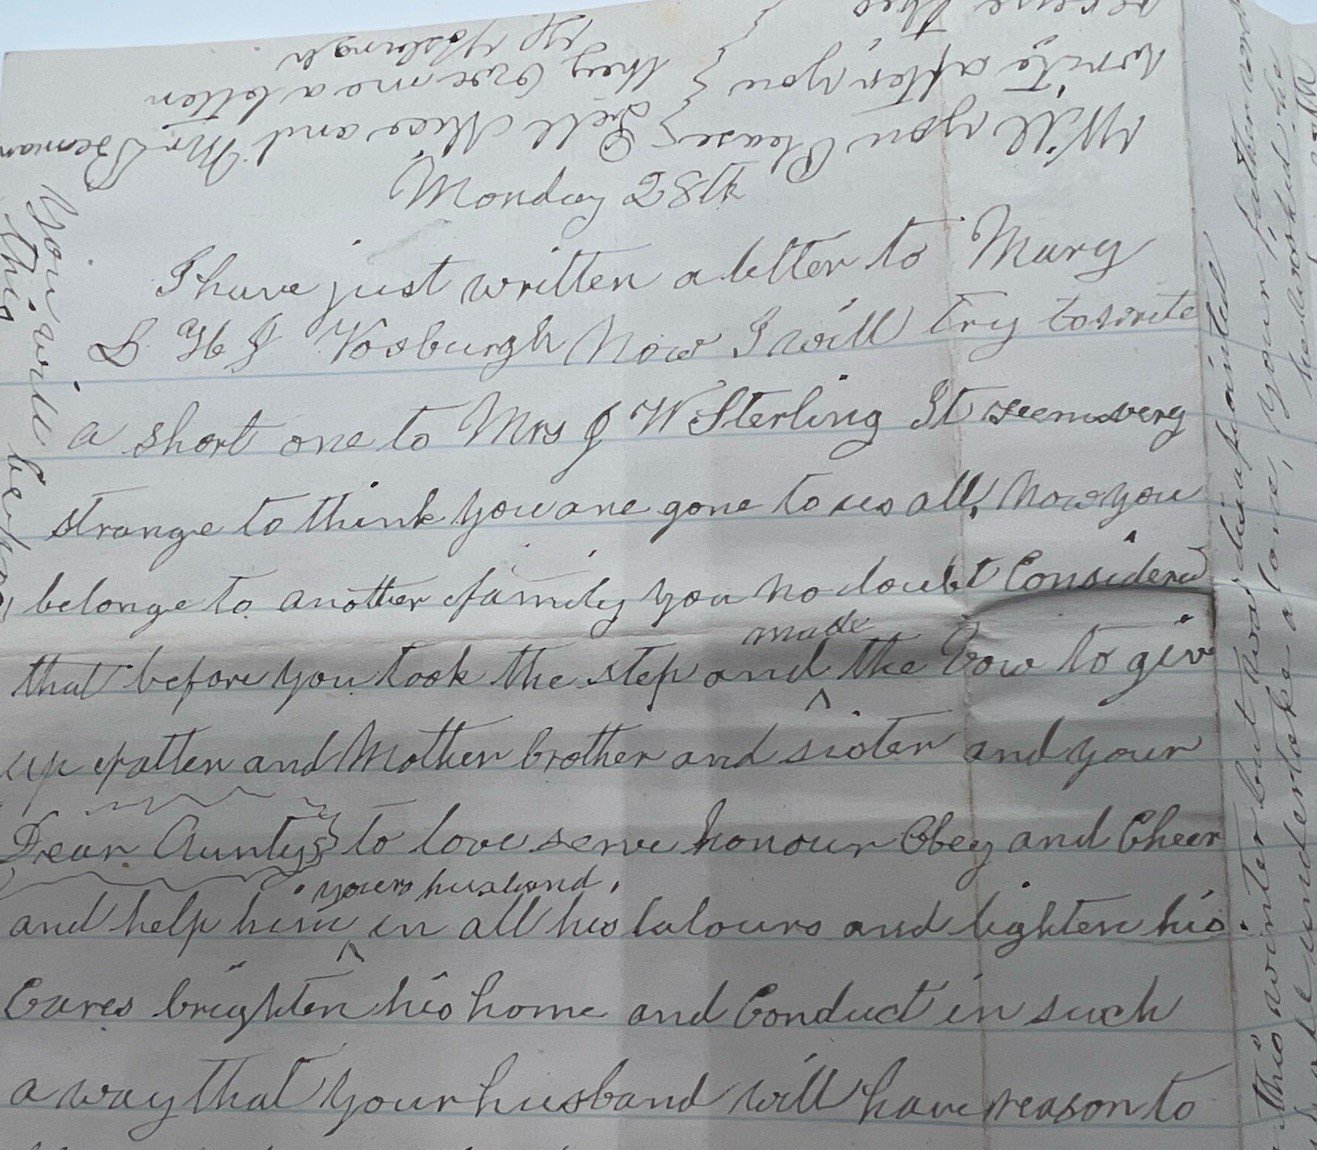 Will you Please Tell Alice and Mr Beman
write after you they owe me a letter
Monday 28th
I have just written a letter to Mary
& H J Vosburgh Now I will try to write
a short one to Mrs J W Sterling It seems very
strange to think you are gone to us all, Now you
belonge to another family you no doubt Considerd
that before you took the step and made the Vow to giv
up father and Mother brother and sister and your
Dear Aunty to love serve honour Obey and Cheer
and help him your husband in all his labours and lighten his
Cares brighten his home and Conduct in such
a way that your husband will have reason to
You will be
this
this winter but was disapointed
undertake alone, your father and
he worked